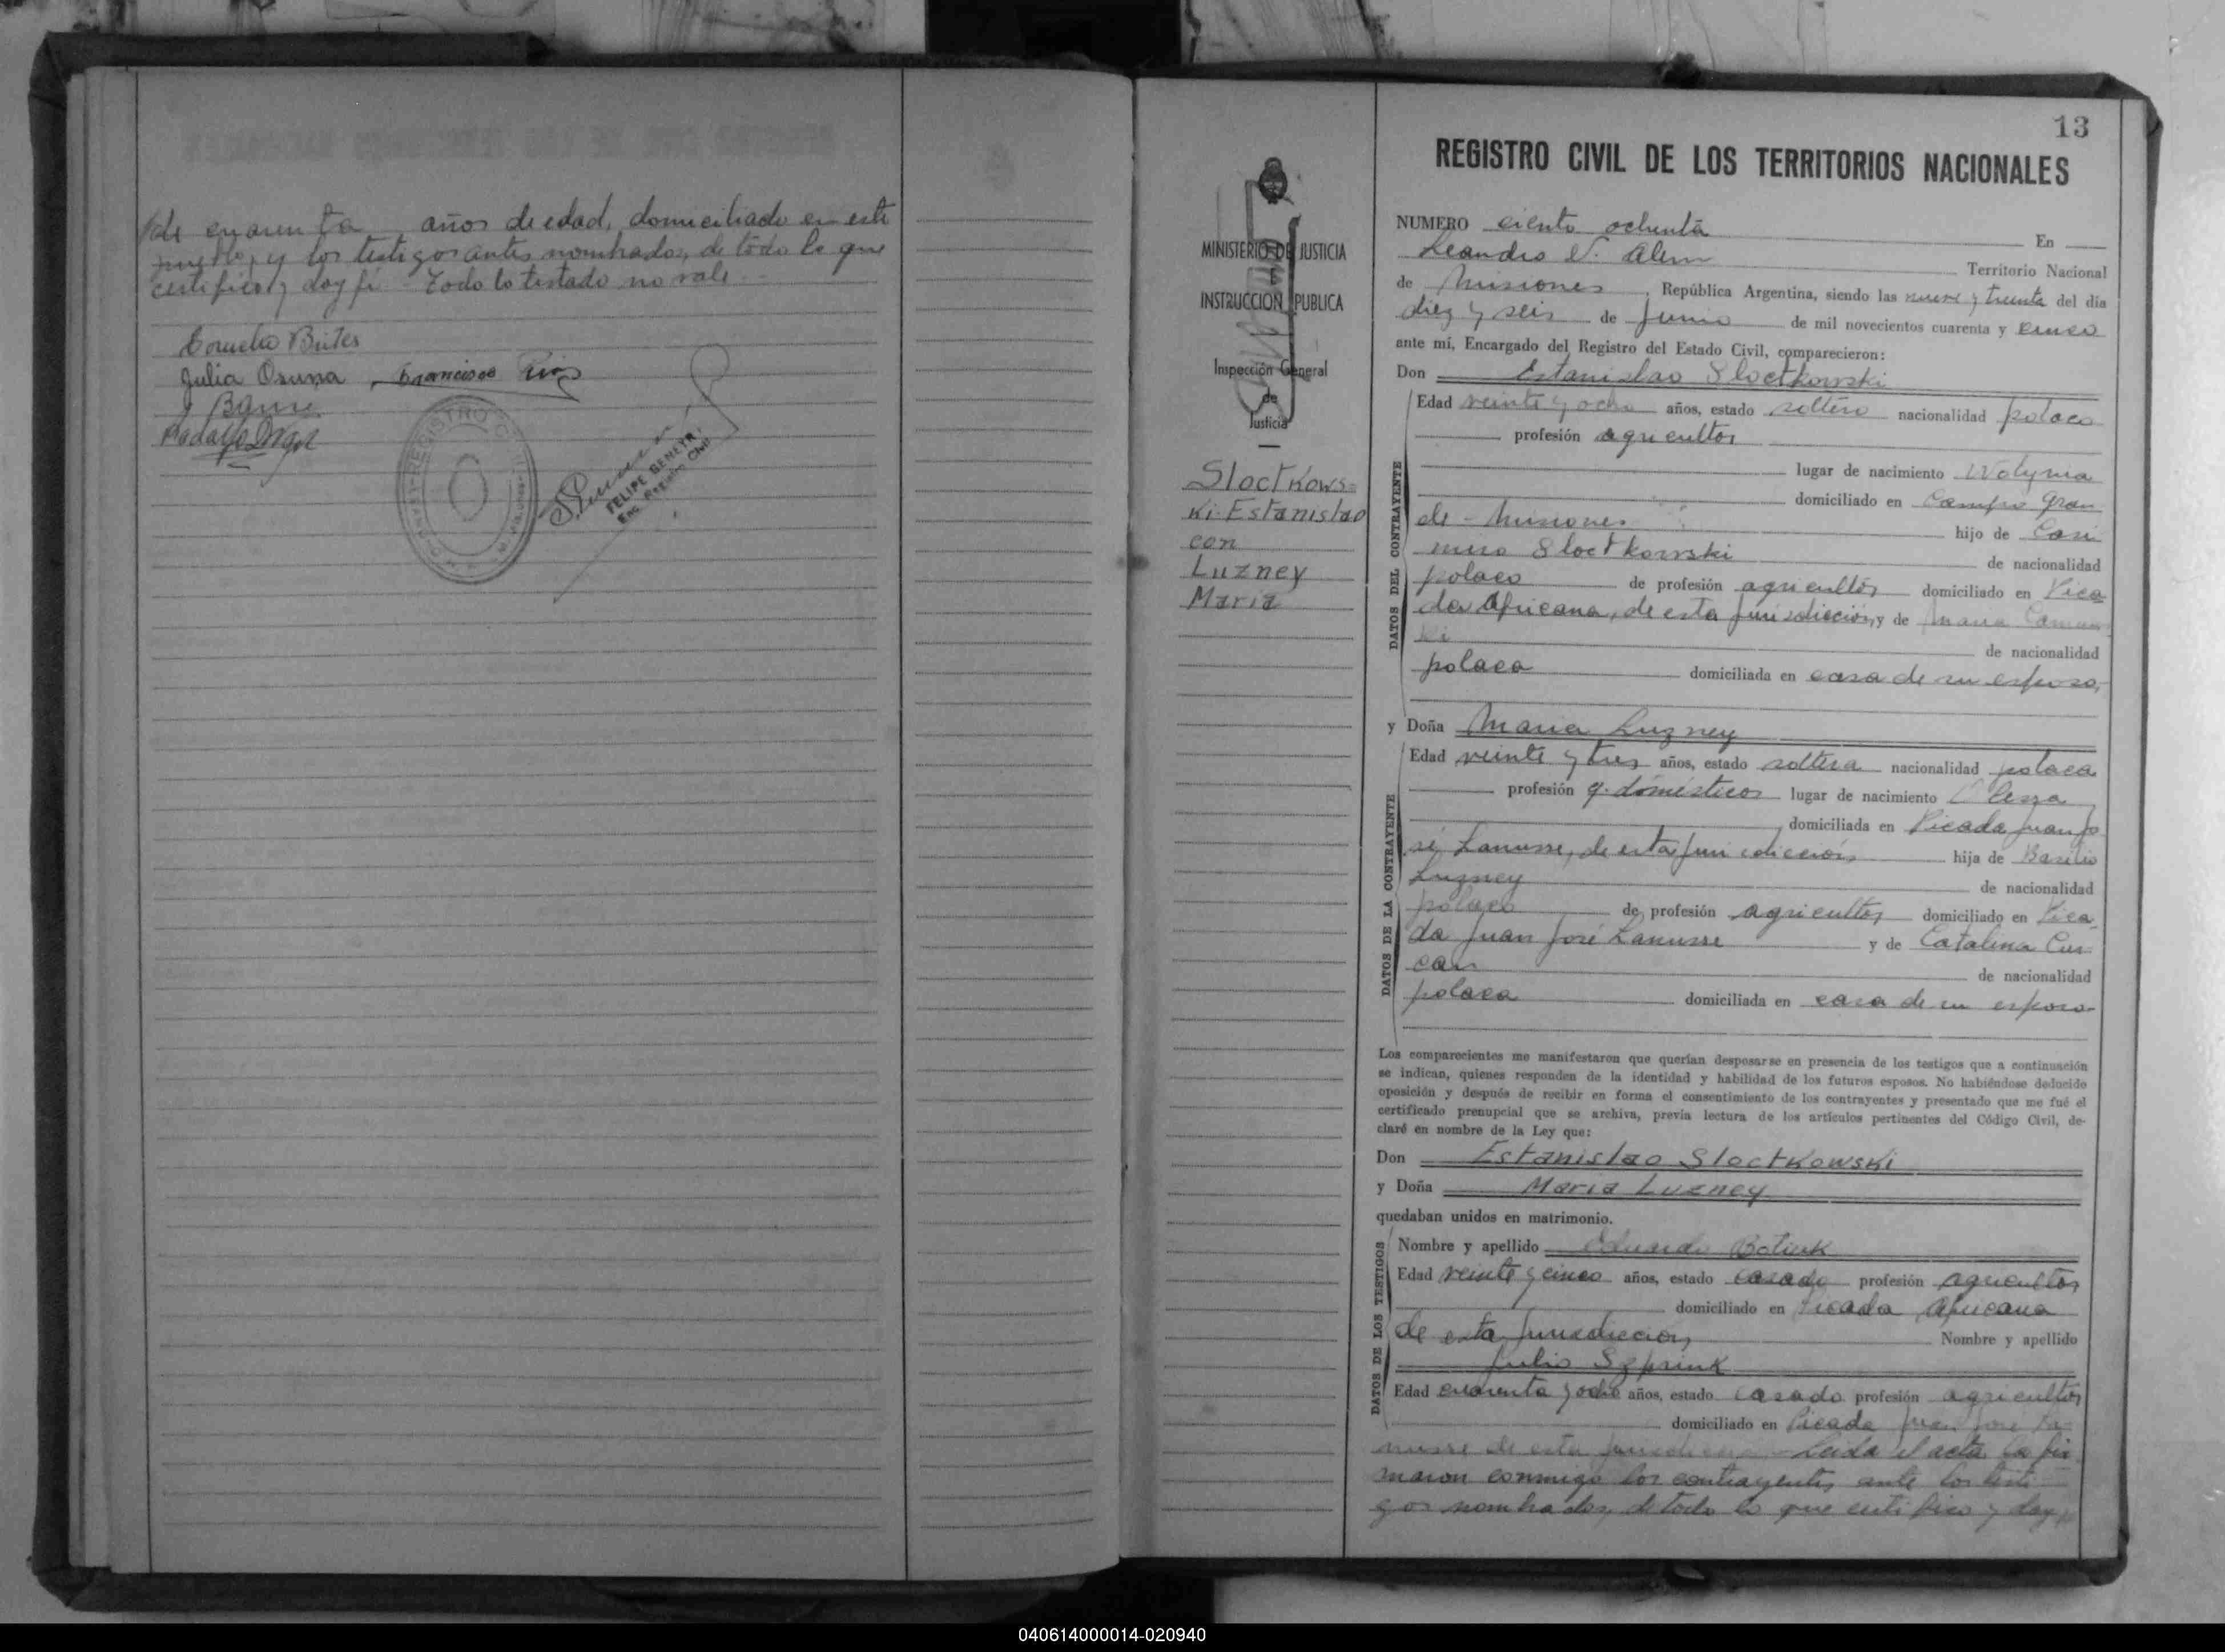 de cuarenta años de edad, domiciliado en este
pueblo, y los testigos antes nombrados, de todo lo que
certifico y doy fé - Todo lo testado no vale. -
Cornelio Brites
Julia Osuna Francisco
REGISTRO CIVIL
FELIPE GENEYR
Enc. Registro Civil
13
REGISTRO CIVIL DE LOS TERRITORIOS NACIONALES
MINISTERIO DE JUSTICIA
E
INSTRUCCIÓN PUBLICA
Inspección General
de
Justicia
Sloctkows=
ki Estanislao
con
Luzney
Maria
NUMERO ciento ochenta En
Leandro N. Alem Territorio Nacional
de Misiones, República Argentina, siendo las nueve y treinta del día
diez y seis de Junio de mil novecientos cuarenta y cinco
ante mí, Encargado del Registro del Estado Civil, comparecieron:
Don Estanislao Sloctkowski
DATOS DEL CONTRAYENTE
Edad veinte y ocho años, estado soltero nacionalidad polaco
profesión agricultor
lugar de nacimiento Wolynia
domiciliado en Campo Gran
de - Misiones hijo de Casi
miro Sloctkowski de nacionalidad
polaco de profesión agricultor domiciliado en Pica
da Africana, de esta jurisdicción, y de Maria
ki de nacionalidad
polaca domiciliada en casa de su esposo,
y Doña Maria Luzney
DATOS DE LA CONTRAYENTE
Edad veinte y tres años, estado soltera nacionalidad polaca
profesión q. domésticos lugar de nacimiento
domiciliada en Picada Juan Jo
sé Lanusse, de esta jurisdicción hija de Basilio
Luzney de nacionalidad
polaco de profesión agricultor domiciliado en Pica
da Juan José Lanusse y de Catalina Cur
can de nacionalidad
polaca domiciliada en casa de su esposo
Los comparecientes me manifestaron que querían desposarse en presencia de los testigos que a continuación
se indican, quienes responden de la identidad y habilidad de los futuros esposos. No habiéndose deducido
oposición y después de recibir en forma el consentimiento de los contrayentes y presentado que me fué el
certificado prenupcial que se archiva, previa lectura de los artículos pertinentes del Código Civil, de-
claré en nombre de la Ley que:
Don Estanislao Sloctkowski
y Doña Maria Luzney
quedaban unidos en matrimonio.
DATOS DE LOS TESTIGOS
Nombre y apellido Eduardo Botiuk
Edad veinte y cinco años, estado casado profesión agricultor
domiciliado en Picada Africana
de esta jurisdicción, Nombre y apellido
Julio Szpiniuk
Edad cuarenta y ocho años, estado casado profesión agricultor
domiciliado en Picada Juan José La=
nusse de esta jurisdicción - Leida el acta la fir
maron conmigo los contrayentes ante los testi
gos nombrados, de todo lo que certifico y doy fé
040614000014-020940